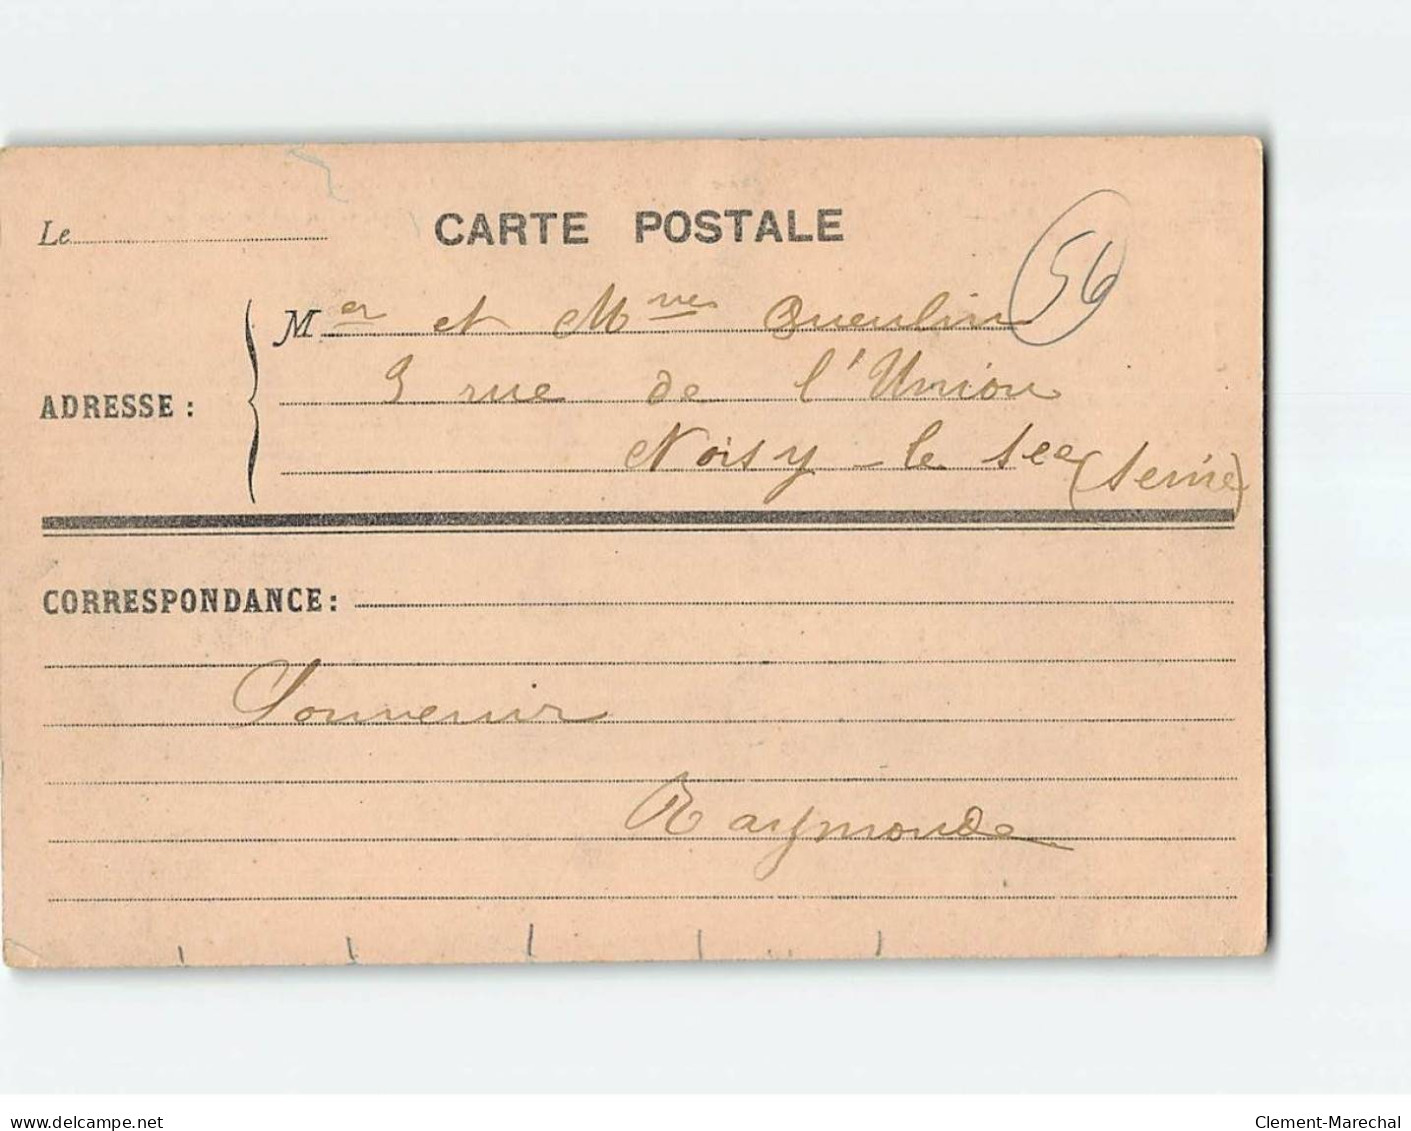 Le
CARTE POSTALE
56
Mer et Mmes Queulin
ADRESSE :
3 rue de l'Union
Noisy-le See (Seine)
CORRESPONDANCE :
Souvenir
Raymonde
delcampe.net
Clement-Marechal